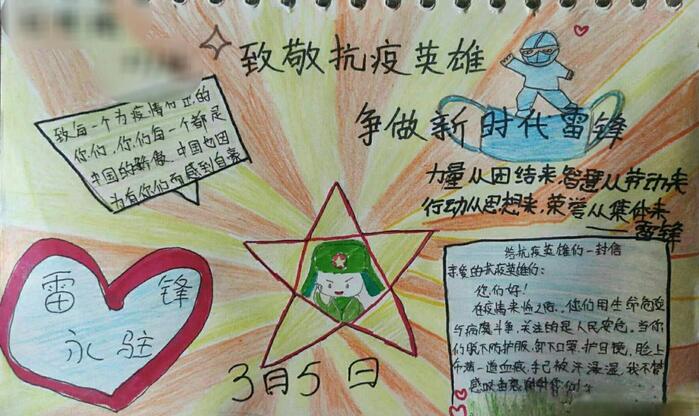 致敬抗疫英雄
争做新时代雷锋
致每一个为疫情付出的
你们，你们每一个都是
中国的骄傲，中国也因
为有你们而感到自豪
力量从团结来，智慧从劳动来
行动从思想来，荣誉从集体来
——雷锋
雷锋
永驻
3月5日
给抗疫英雄的一封信
亲爱的抗疫英雄们：
您们好！
在疫情来临之际，您们用生命危险
与病魔斗争，关注的是人民安危。当你
们脱下防护服，卸下口罩、护目镜，脸上
布满一道血痕，手已被汗湿湿，我不禁
感叹由衷谢谢你们！